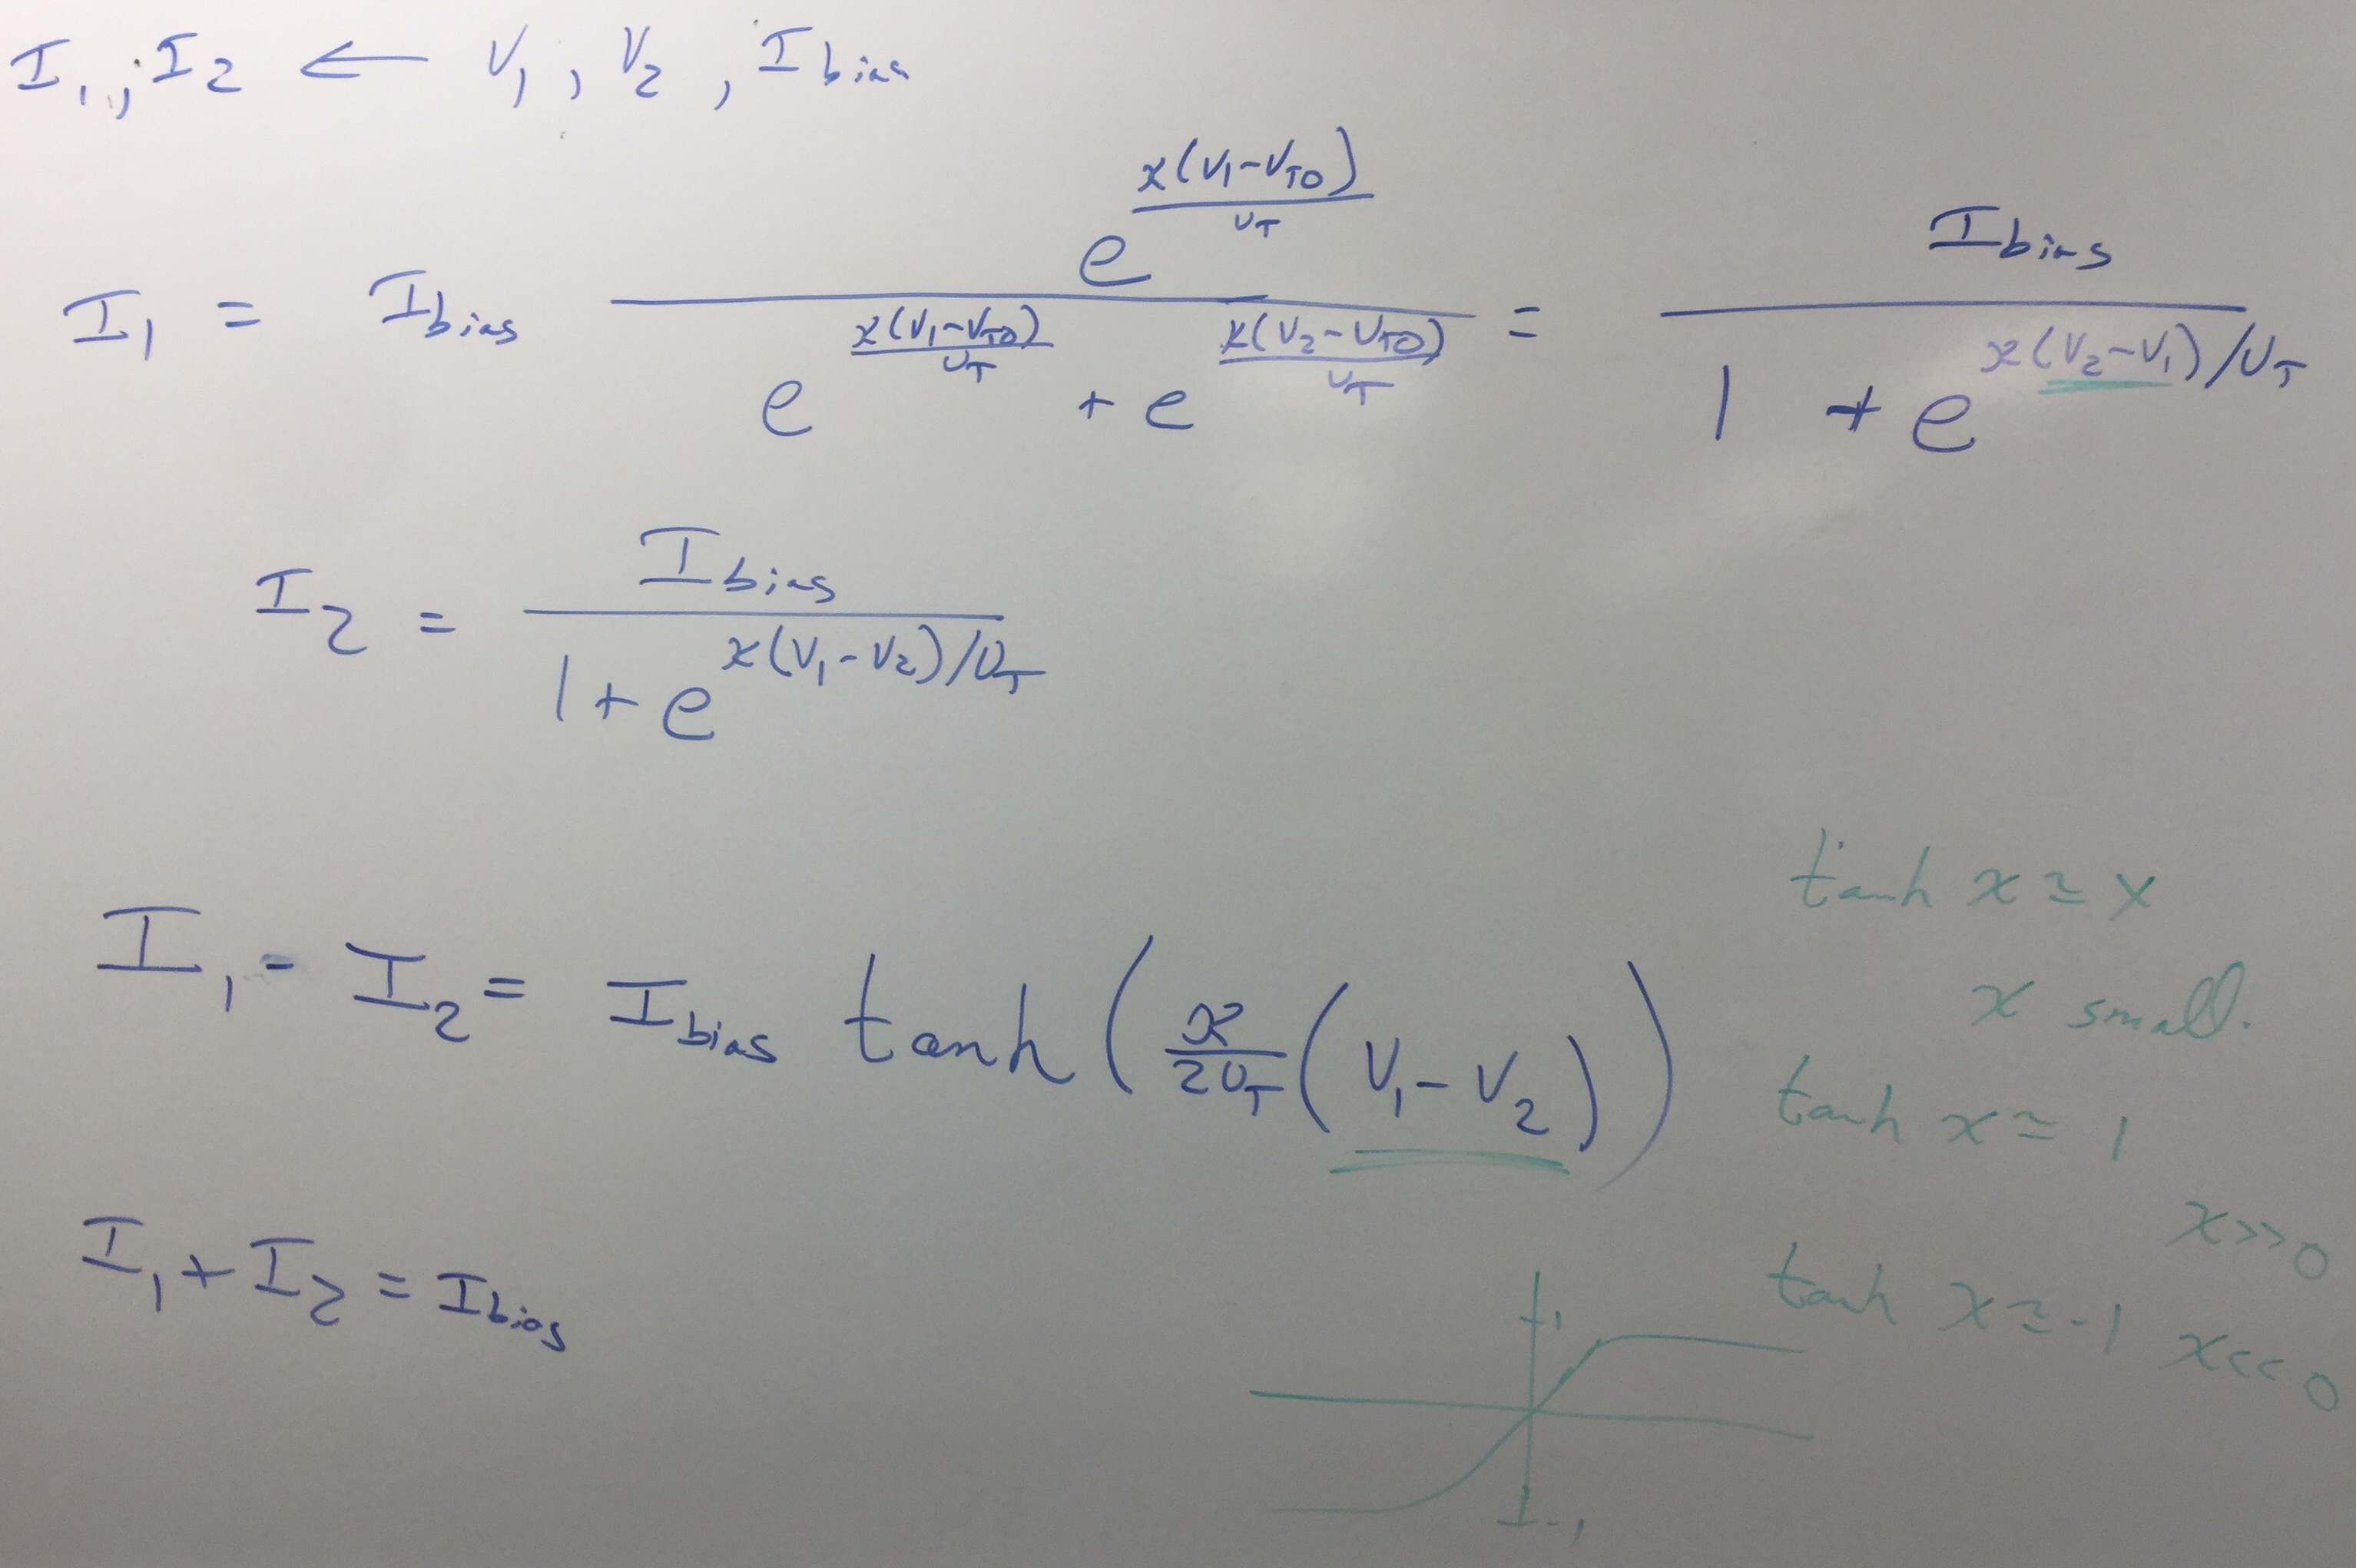 I₁, I₂ ← V₁, V₂, I_bias
I₁ = I_bias e^(κ(V₁-V_T0)/U_T) / (e^(κ(V₁-V_T0)/U_T) + e^(κ(V₂-V_T0)/U_T)) = I_bias / (1 + e^(κ(V₂-V₁)/U_T))
I₂ = I_bias / (1 + e^(κ(V₁-V₂)/U_T))
I₁ - I₂ = I_bias tanh(κ/2U_T (V₁ - V₂))
I₁ + I₂ = I_bias
tanh x ≃ x
x small.
tanh x ≃ 1
x >> 0
tanh x ≃ -1 x << 0
1
-1